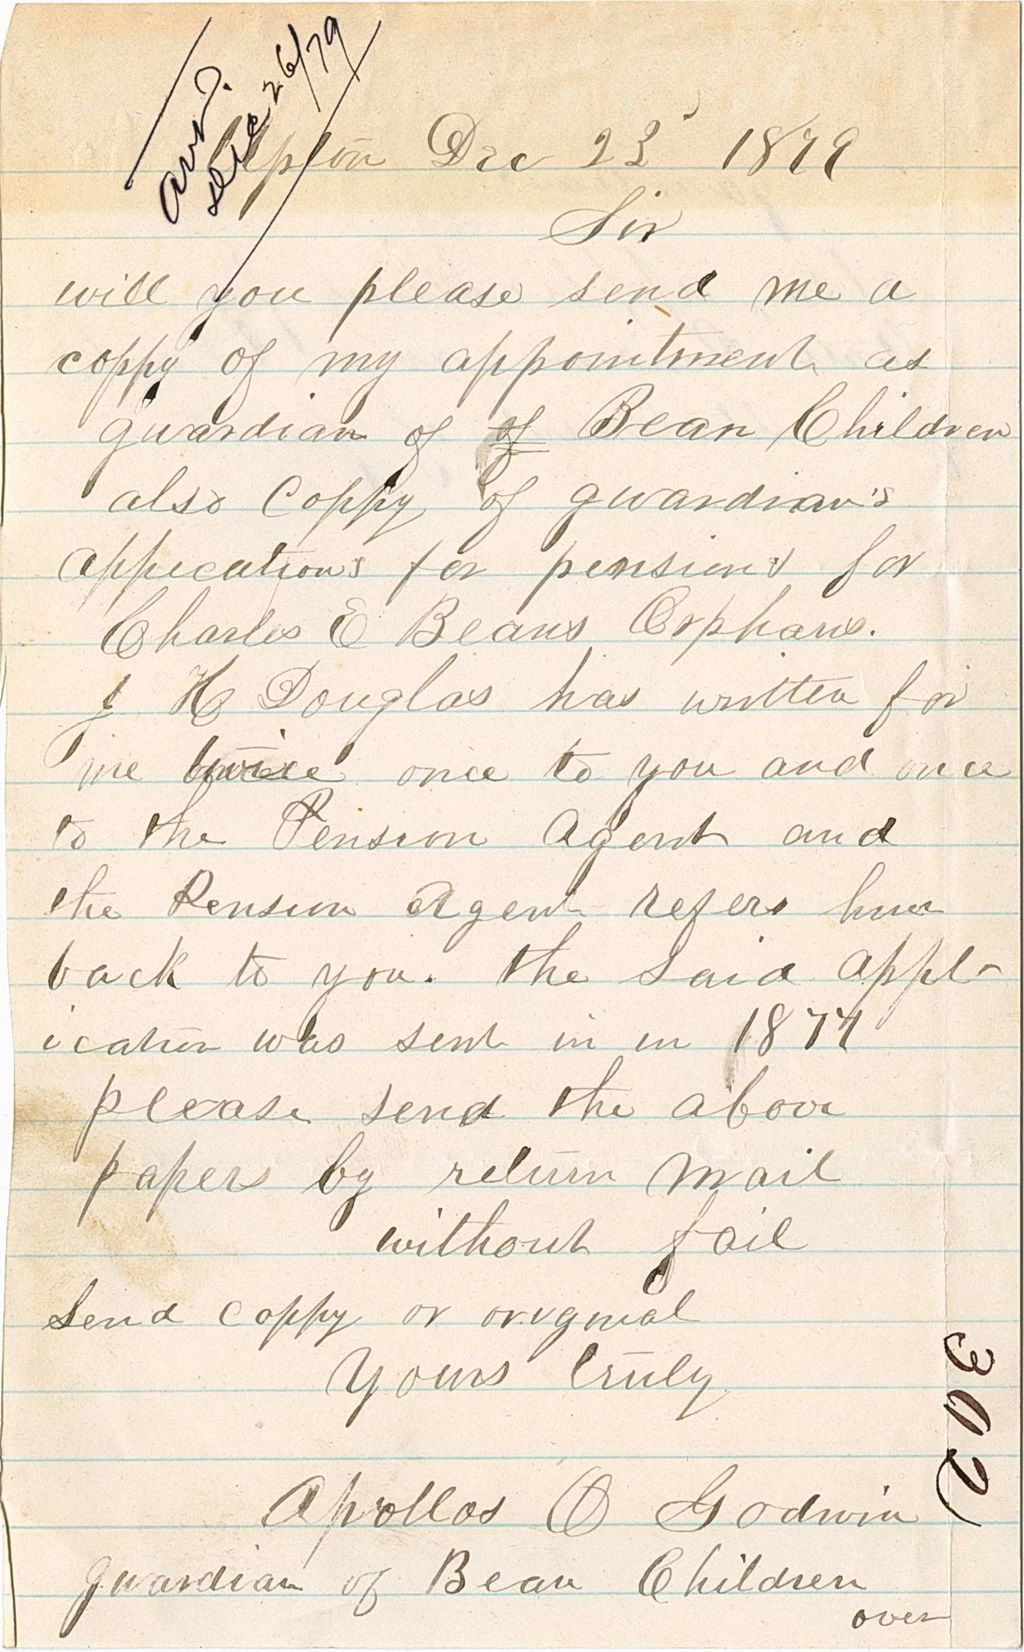 ans.
Dec 26/79
Upton Dec 23 1879
Sir
will you please send me a
coppy of my appointment as
guardian of of Bean Children
also Coppy of guardian's
appications for pensions for
Charles E Beans Orphans.
J H Douglas has written for
me twice once to you and once
to the Pension Agent and
the Pension Agent refers him
back to you. the said appl-
ication was sent in in 1877
please send the above
papers by return mail
without fail
Send coppy or original
Yours truly
Apollos O Godwin
guardian of Bean Children
over
302